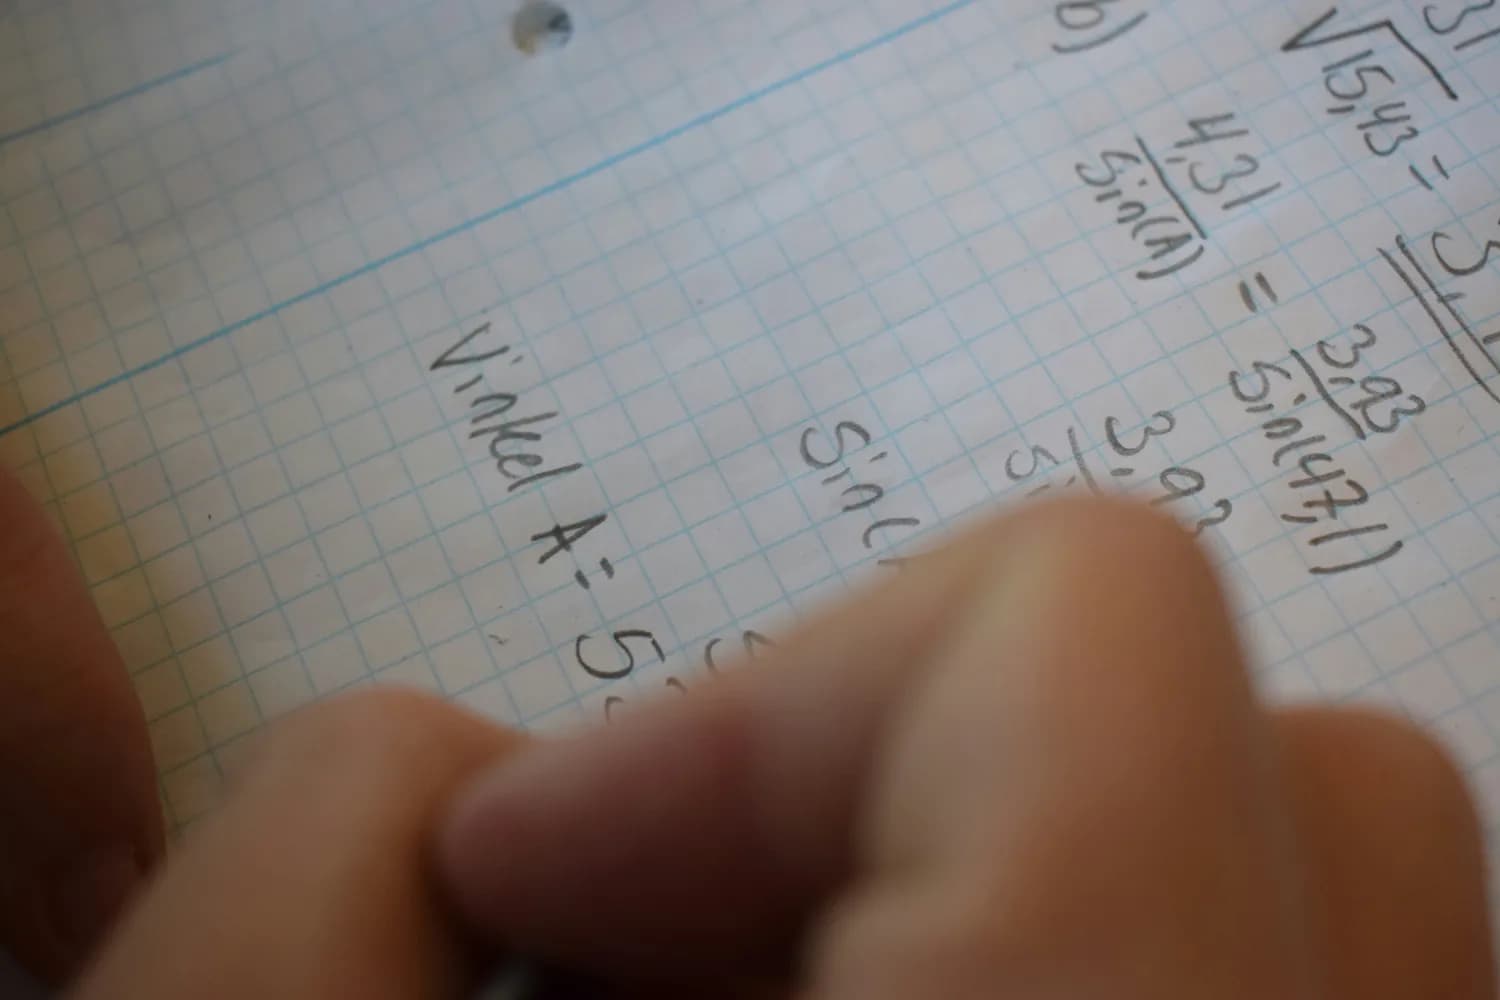 √15,43 = 3,
b) 4,31 / sin(A) = 3,93 / sin(47,1)
3,93
sin(
Vinkel A= 5